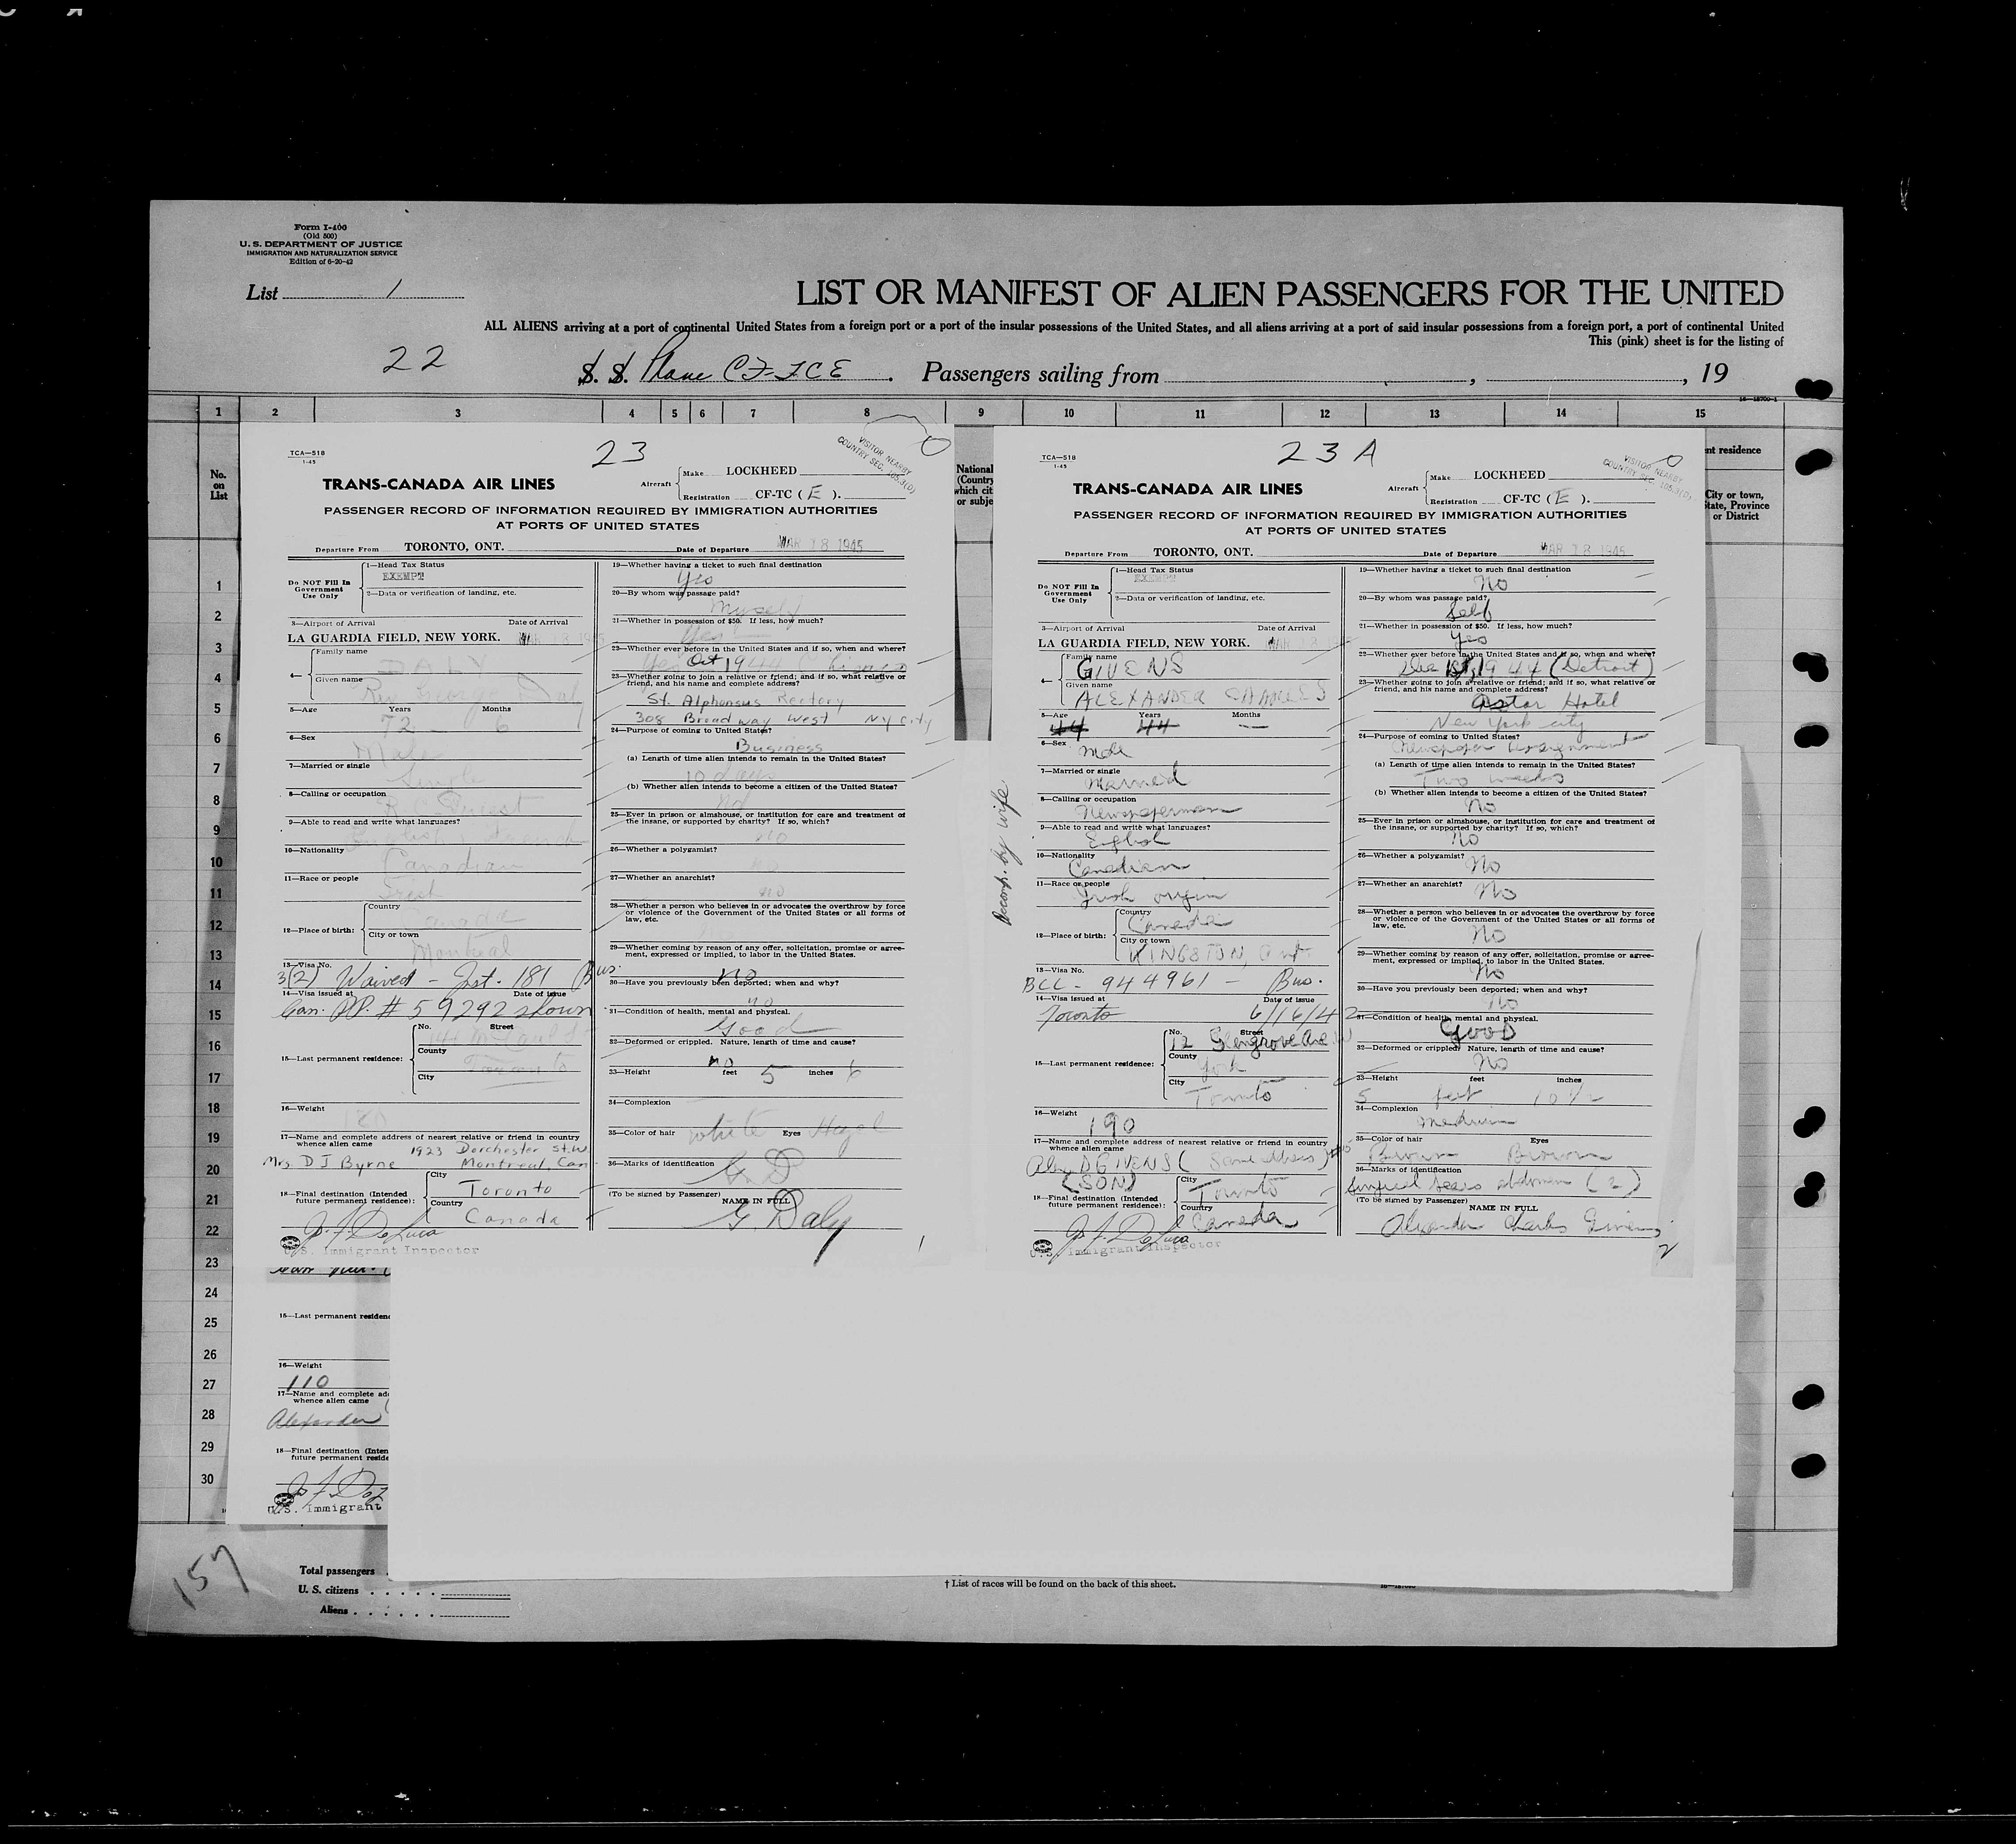 Form I-400
(Old 500)
U. S. DEPARTMENT OF JUSTICE
IMMIGRATION AND NATURALIZATION SERVICE
Edition of 6-20-42
List 1
LIST OR MANIFEST OF ALIEN PASSENGERS FOR THE UNITED
ALL ALIENS arriving at a port of continental United States from a foreign port or a port of the insular possessions of the United States, and all aliens arriving at a port of said insular possessions from a foreign port, a port of continental United
This (pink) sheet is for the listing of
22 S. S. Plane CF-TCE. Passengers sailing from , , 19
1 2 3 4 5 6 7 8 9 10 11 12 13 14 15
No. on List
National
(Country
which cit
or subje
nt residence
City or town,
State, Province
or District
1
2
3
4
5
6
7
8
9
10
11
12
13
14
15
16
17
18
19
20
21
22
23
24
25
26
27
28
29
30
TCA—518
1-45
23
VISITOR NEARBY
COUNTRY SEC. 105.3(D)
TRANS-CANADA AIR LINES
Aircraft Make LOCKHEED
Registration CF-TC ( E ).
PASSENGER RECORD OF INFORMATION REQUIRED BY IMMIGRATION AUTHORITIES
AT PORTS OF UNITED STATES
Departure From TORONTO, ONT. Date of Departure MAR 18 1945
Do NOT Fill In
Government
Use Only
1—Head Tax Status
EXEMPT
2—Data or verification of landing, etc.
3—Airport of Arrival Date of Arrival
LA GUARDIA FIELD, NEW YORK. MAR 18 1945
4— Family name
DALY
Given name
George Daly
5—Age Years Months
72 6
6—Sex
Male
7—Married or single
Single
8—Calling or occupation
R C Priest
9—Able to read and write what languages?
English French
10—Nationality
Canadian
11—Race or people
Irish
12—Place of birth: Country
Canada
City or town
Montreal
13—Visa No.
3(2) Waived - Jst. 181 (Bus.
14—Visa issued at Date of issue
Can. PP. # 59292 shown
15—Last permanent residence: No. Street
County
City
Toronto
16—Weight
180
17—Name and complete address of nearest relative or friend in country
whence alien came
1923 Dorchester St. W.
Mrs. D J Byrne Montreal, Can
18—Final destination (Intended
future permanent residence): City
Toronto
Country
Canada
J. F. DeLuca
U.S. Immigrant Inspector
19—Whether having a ticket to such final destination
Yes
20—By whom was passage paid?
Myself
21—Whether in possession of $50. If less, how much?
Yes
22—Whether ever before in the United States and if so, when and where?
Yes Oct 1944 Chicago
23—Whether going to join a relative or friend; and if so, what relative or
friend, and his name and complete address?
St. Alphonsus Rectory
308 Broadway West NY City
24—Purpose of coming to United States?
Business
(a) Length of time alien intends to remain in the United States?
10 days
(b) Whether alien intends to become a citizen of the United States?
No
25—Ever in prison or almshouse, or institution for care and treatment of
the insane, or supported by charity? If so, which?
no
26—Whether a polygamist?
no
27—Whether an anarchist?
no
28—Whether a person who believes in or advocates the overthrow by force
or violence of the Government of the United States or all forms of
law, etc.
29—Whether coming by reason of any offer, solicitation, promise or agree-
ment, expressed or implied, to labor in the United States.
no
30—Have you previously been deported; when and why?
no
31—Condition of health, mental and physical.
Good
32—Deformed or crippled. Nature, length of time and cause?
no
33—Height feet 5 inches 6
34—Complexion
35—Color of hair white Eyes Hazel
36—Marks of identification
(To be signed by Passenger) NAME IN FULL
G. Daly
1
TCA—518
1-45
23 A
VISITOR NEARBY
COUNTRY SEC. 105.3(D)
TRANS-CANADA AIR LINES
Aircraft Make LOCKHEED
Registration CF-TC ( E ).
PASSENGER RECORD OF INFORMATION REQUIRED BY IMMIGRATION AUTHORITIES
AT PORTS OF UNITED STATES
Departure From TORONTO, ONT. Date of Departure MAR 18 1945
Do NOT Fill In
Government
Use Only
1—Head Tax Status
EXEMPT
2—Data or verification of landing, etc.
3—Airport of Arrival Date of Arrival
LA GUARDIA FIELD, NEW YORK. MAR 18
4— Family name
GIVENS
Given name
ALEXANDER CHARLES
5—Age Years Months
44 44 —
6—Sex
Male
7—Married or single
Married
8—Calling or occupation
Newspaperman
9—Able to read and write what languages?
English
10—Nationality
Canadian
11—Race or people
Irish origin
12—Place of birth: Country
Canada
City or town
KINGSTON, Ont.
13—Visa No.
BCC - 944961 - Bus.
14—Visa issued at Date of issue
Toronto 6/16/42
15—Last permanent residence: No. Street
12 Glengrove Ave W
County
York
City
Toronto
16—Weight
190
17—Name and complete address of nearest relative or friend in country
whence alien came
D GIVENS (Same address)
(SON)
18—Final destination (Intended
future permanent residence): City
Toronto
Country
Canada
J. F. DeLuca
U.S. Immigrant Inspector
Accomp. by wife
19—Whether having a ticket to such final destination
No
20—By whom was passage paid?
Self
21—Whether in possession of $50. If less, how much?
Yes
22—Whether ever before in the United States and if so, when and where?
1944 (Detroit)
23—Whether going to join a relative or friend; and if so, what relative or
friend, and his name and complete address?
Astor Hotel
New York city
24—Purpose of coming to United States?
Newspaper Assignment
(a) Length of time alien intends to remain in the United States?
Two weeks
(b) Whether alien intends to become a citizen of the United States?
No
25—Ever in prison or almshouse, or institution for care and treatment of
the insane, or supported by charity? If so, which?
No
26—Whether a polygamist?
No
27—Whether an anarchist?
No
28—Whether a person who believes in or advocates the overthrow by force
or violence of the Government of the United States or all forms of
law, etc.
No
29—Whether coming by reason of any offer, solicitation, promise or agree-
ment, expressed or implied, to labor in the United States.
No
30—Have you previously been deported; when and why?
No
31—Condition of health, mental and physical.
Good
32—Deformed or crippled. Nature, length of time and cause?
No
33—Height feet inches
5 feet 10 1/2
34—Complexion
Medium
35—Color of hair Eyes
Brown Brown
36—Marks of identification
Surgical Scars abdomen (2)
(To be signed by Passenger) NAME IN FULL
Alexander Charles Givens
2
15—Last permanent residenc
16—Weight
110
17—Name and complete add
whence alien came
Alexander
18—Final destination (Inten
future permanent reside
U.S. Immigrant
157
Total passengers
U. S. citizens
Aliens
† List of races will be found on the back of this sheet.